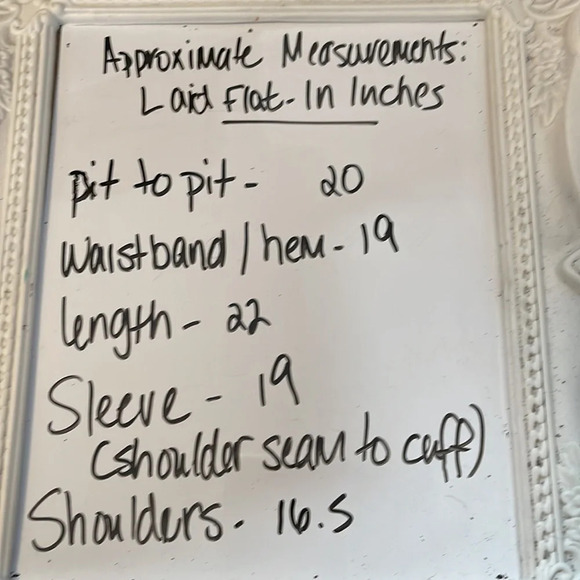 Approximate Measurements:
Laid Flat - In Inches
pit to pit - 20
waistband / hem - 19
length - 22
Sleeve - 19
(shoulder seam to cuff)
Shoulders - 16.5